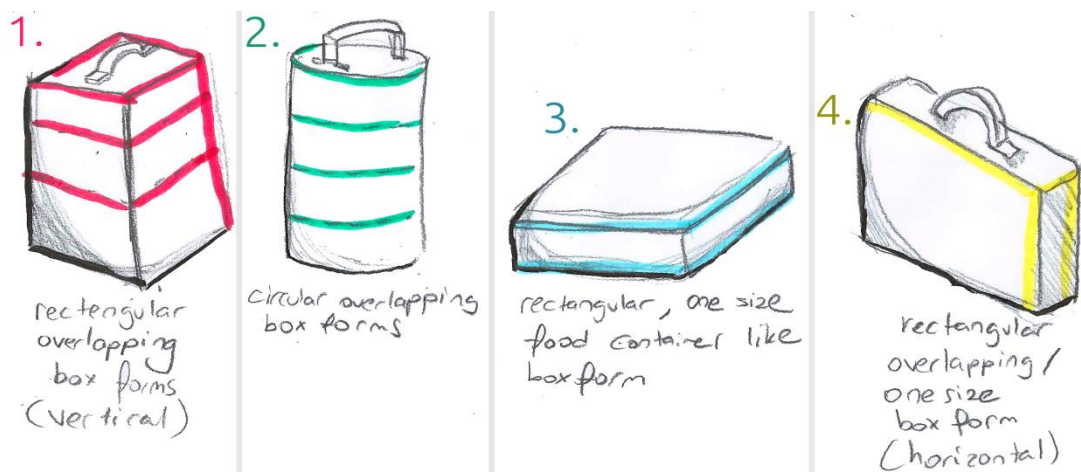 1.
rectengular
overlapping
box forms
(vertical)
2.
circular overlapping
box forms
3.
rectangular, one size
food container like
box form
4.
rectangular
overlapping/
one size
box form
(horizontal)